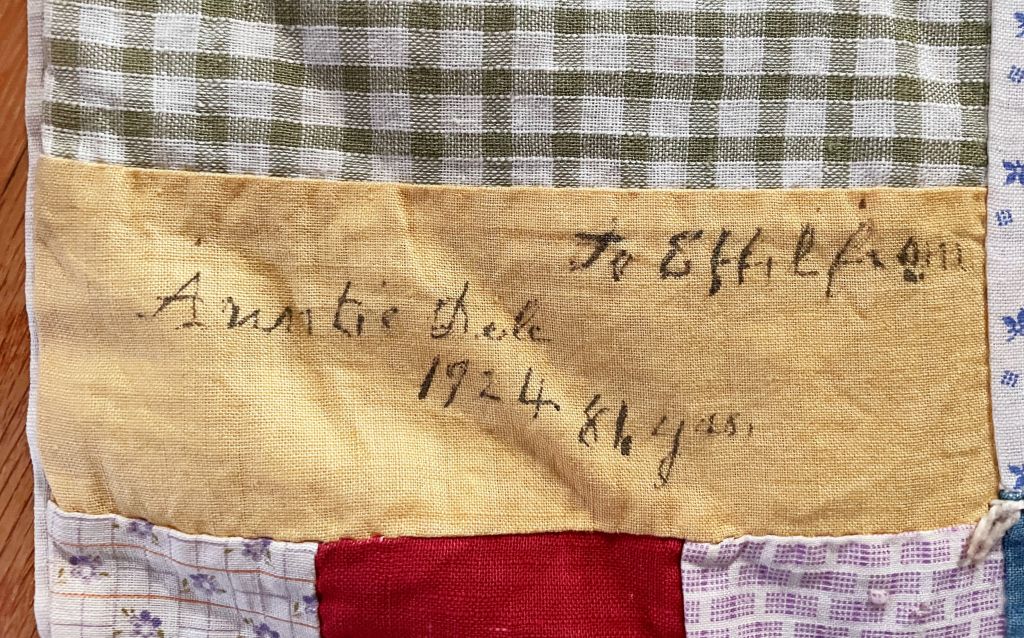 To Effie from
Auntie
1924 81 yrs.